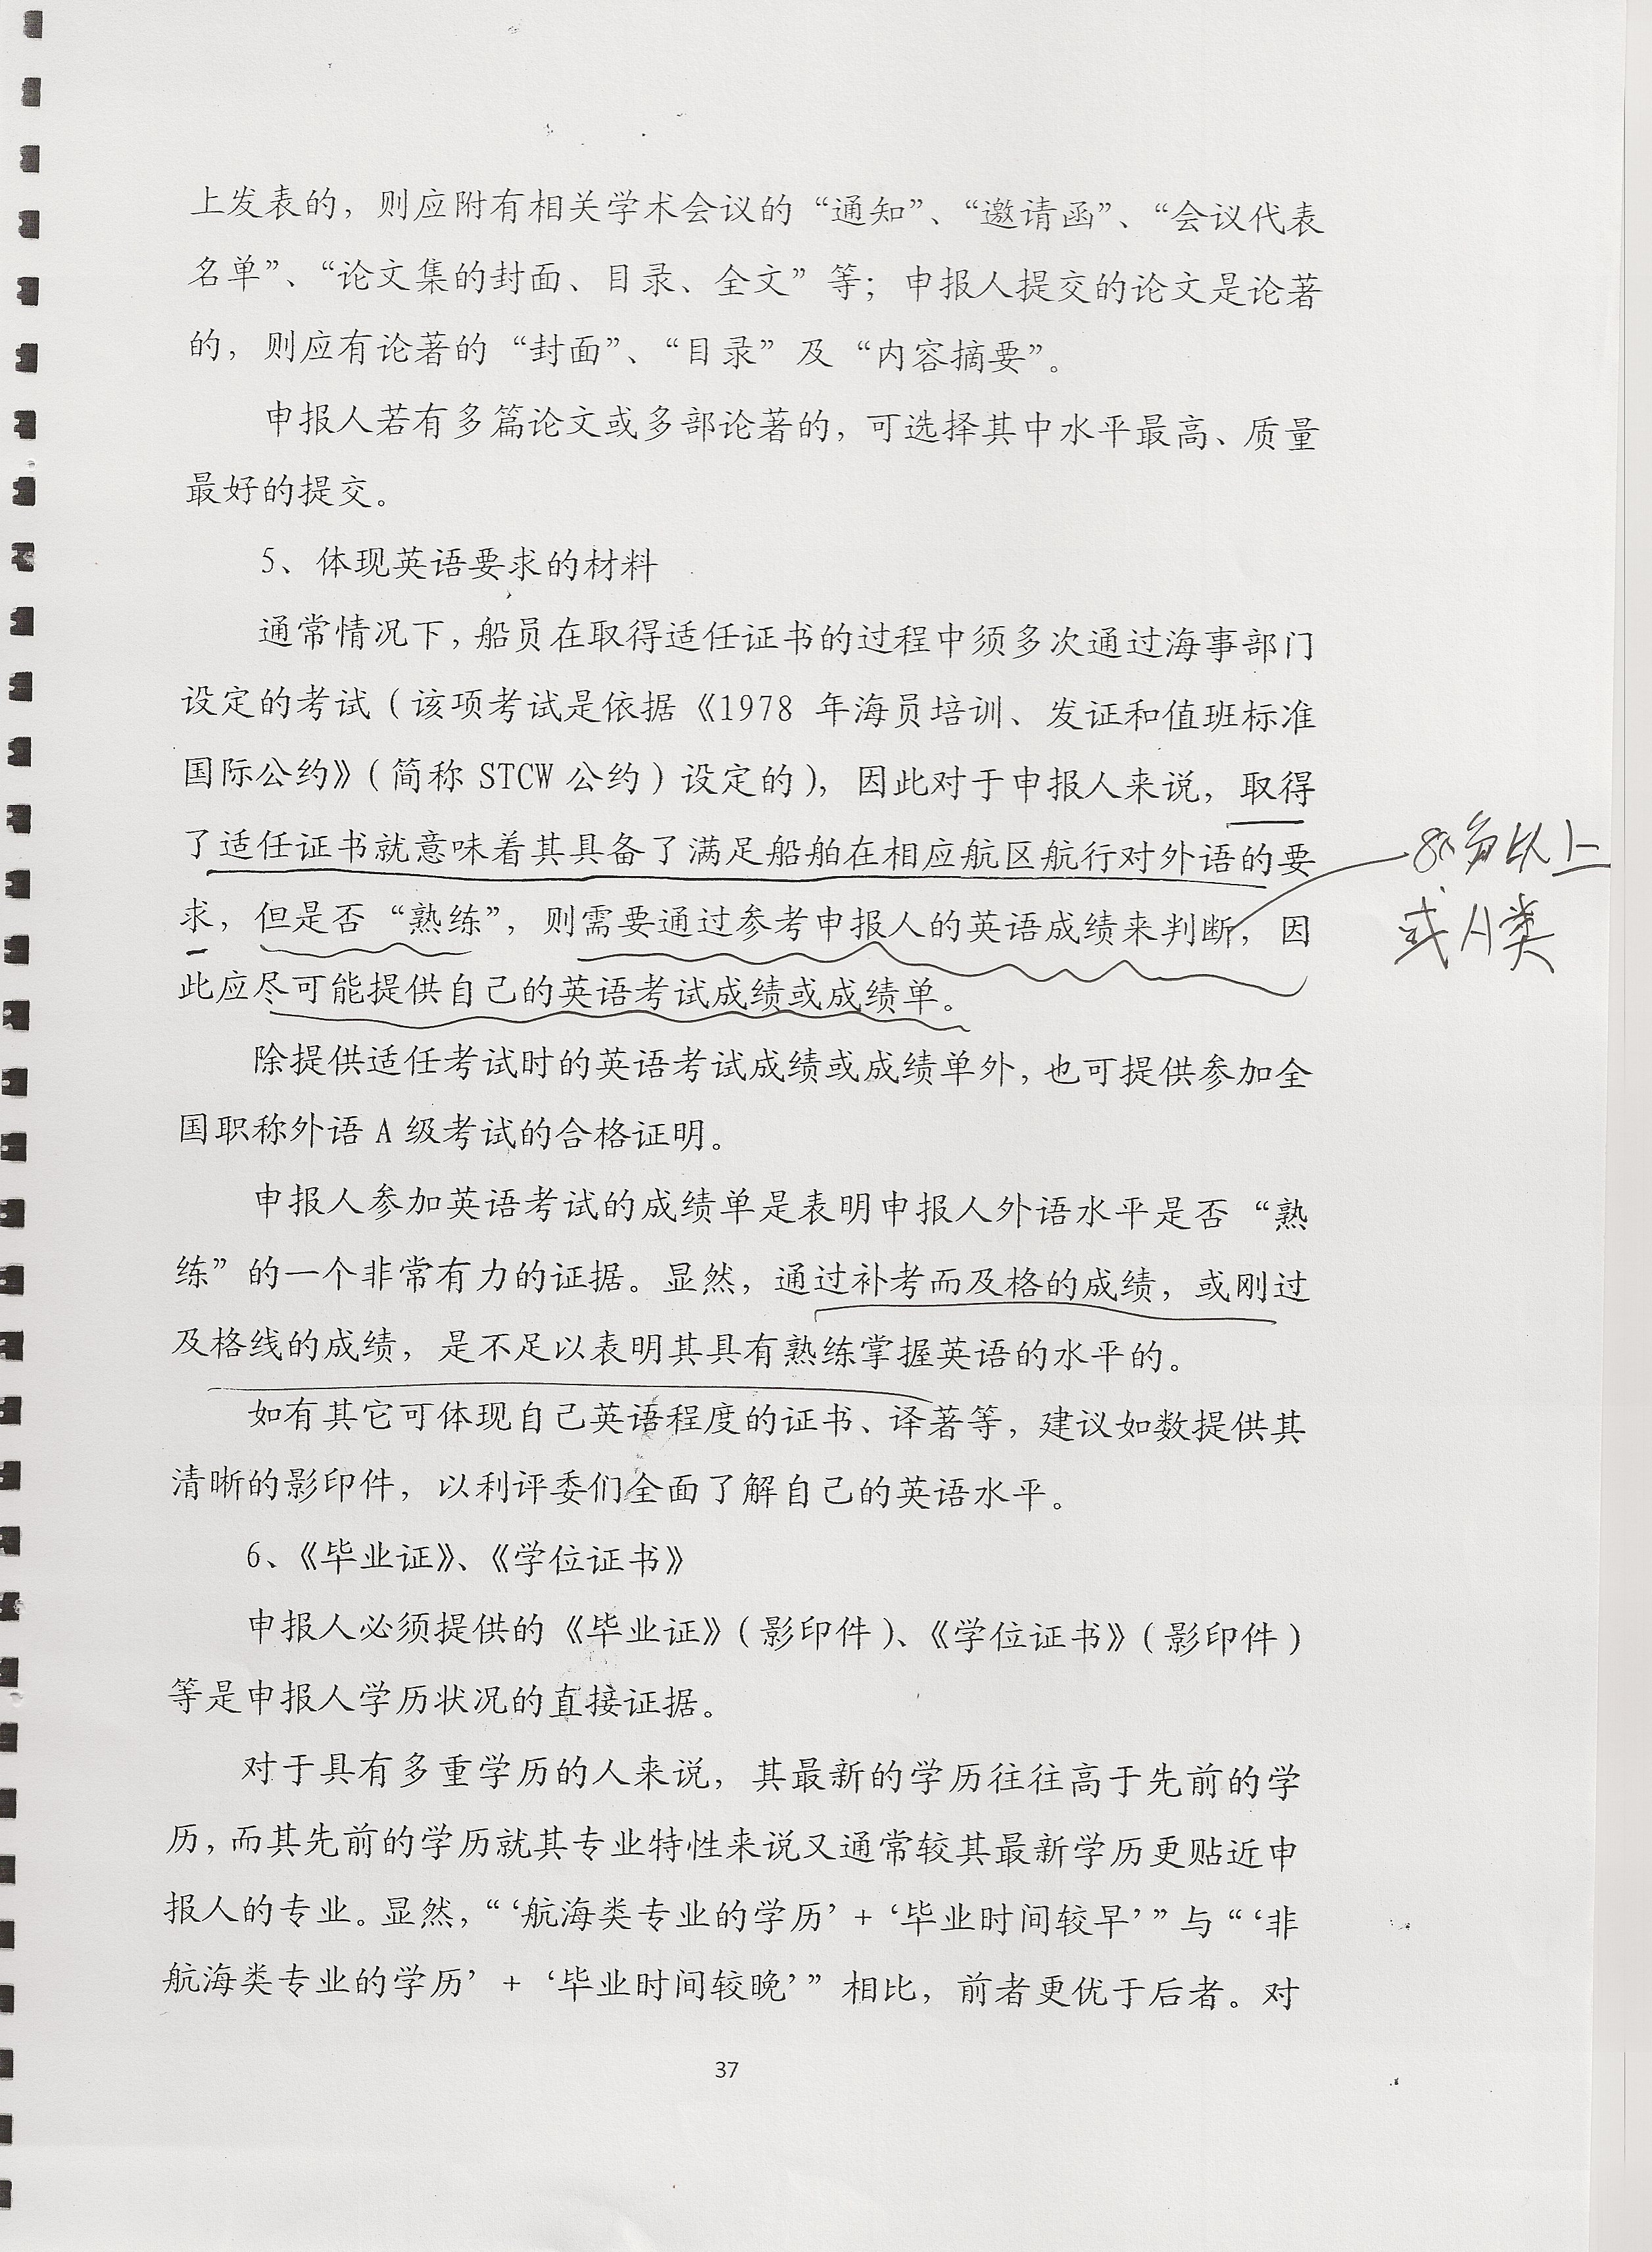 上发表的，则应附有相关学术会议的“通知”、“邀请函”、“会议代表
名单”、“论文集的封面、目录、全文”等；申报人提交的论文是论著
的，则应有论著的“封面”、“目录”及“内容摘要”。
申报人若有多篇论文或多部论著的，可选择其中水平最高、质量
最好的提交。
5、体现英语要求的材料
通常情况下，船员在取得适任证书的过程中须多次通过海事部门
设定的考试（该项考试是依据《1978 年海员培训、发证和值班标准
国际公约》（简称 STCW 公约）设定的），因此对于申报人来说，取得
了适任证书就意味着其具备了满足船舶在相应航区航行对外语的要
求，但是否“熟练”，则需要通过参考申报人的英语成绩来判断，因
此应尽可能提供自己的英语考试成绩或成绩单。
以上
或A类
除提供适任考试时的英语考试成绩或成绩单外，也可提供参加全
国职称外语 A 级考试的合格证明。
申报人参加英语考试的成绩单是表明申报人外语水平是否“熟
练”的一个非常有力的证据。显然，通过补考而及格的成绩，或刚过
及格线的成绩，是不足以表明其具有熟练掌握英语的水平的。
如有其它可体现自己英语程度的证书、译著等，建议如数提供其
清晰的影印件，以利评委们全面了解自己的英语水平。
6、《毕业证》、《学位证书》
申报人必须提供的《毕业证》（影印件）、《学位证书》（影印件）
等是申报人学历状况的直接证据。
对于具有多重学历的人来说，其最新的学历往往高于先前的学
历，而其先前的学历就其专业特性来说又通常较其最新学历更贴近申
报人的专业。显然，“‘航海类专业的学历’+‘毕业时间较早’”与“‘非
航海类专业的学历’+‘毕业时间较晚’”相比，前者更优于后者。对
37